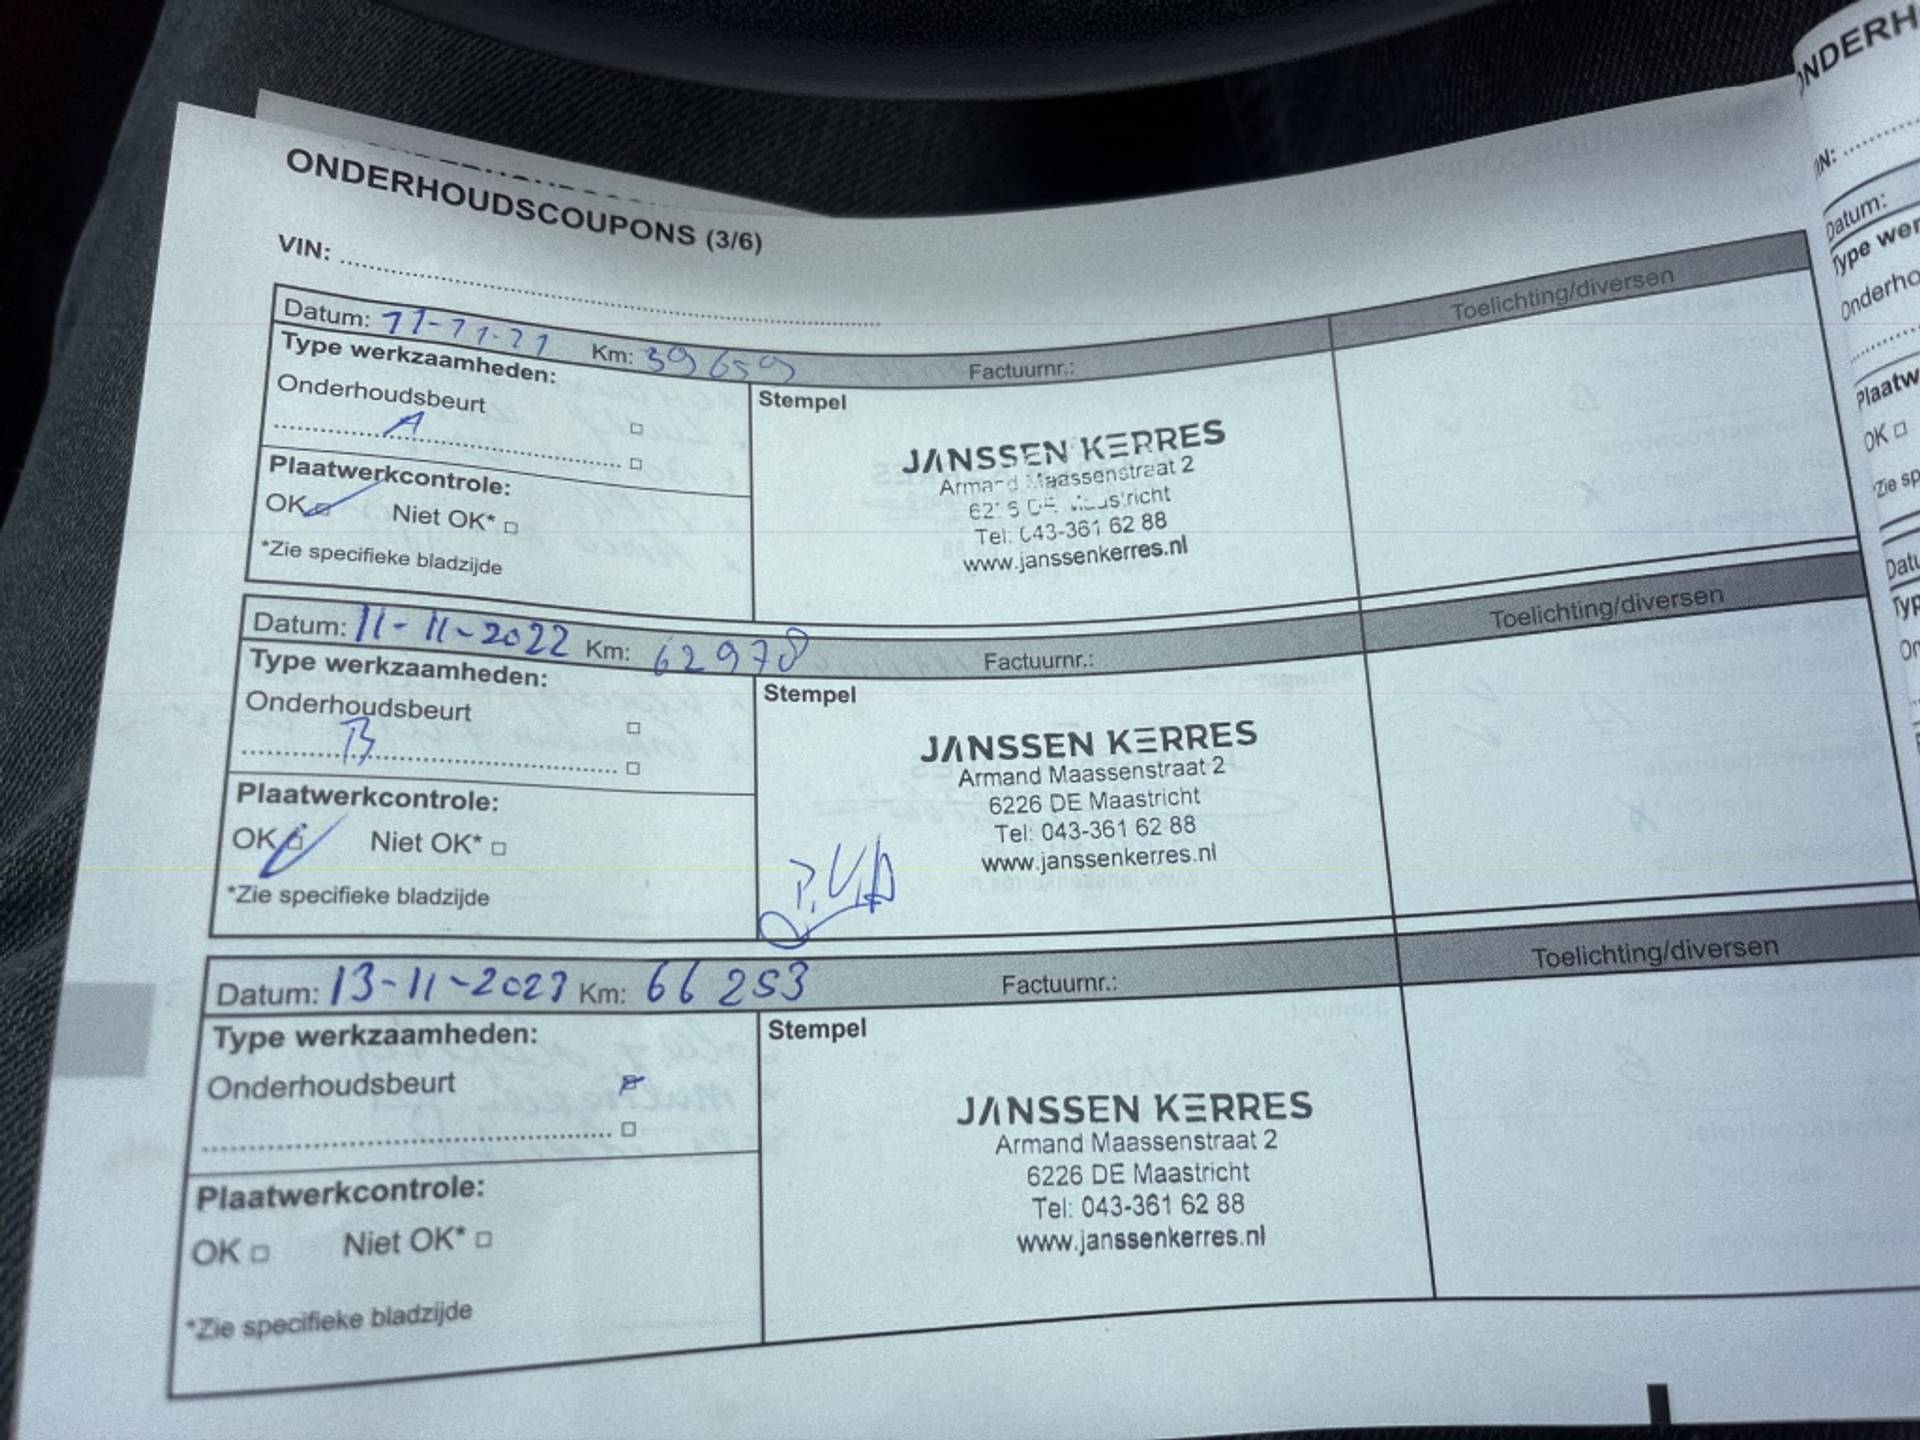 ONDERHOUDSCOUPONS (3/6)
VIN:
Datum: 11-11-21 Km: 39659 Factuurnr.: Toelichting/diversen
Type werkzaamheden:
Onderhoudsbeurt
A
Stempel
JANSSEN KERRES
Armand Maassenstraat 2
6226 DE Maastricht
Tel: 043-361 62 88
www.janssenkerres.nl
Plaatwerkcontrole:
OK Niet OK*
*Zie specifieke bladzijde
Datum: 11-11-2022 Km: 62978 Factuurnr.: Toelichting/diversen
Type werkzaamheden:
Onderhoudsbeurt
B
Stempel
JANSSEN KERRES
Armand Maassenstraat 2
6226 DE Maastricht
Tel: 043-361 62 88
www.janssenkerres.nl
Plaatwerkcontrole:
OK Niet OK*
*Zie specifieke bladzijde
Datum: 13-11-2023 Km: 66253 Factuurnr.: Toelichting/diversen
Type werkzaamheden:
Onderhoudsbeurt
Stempel
JANSSEN KERRES
Armand Maassenstraat 2
6226 DE Maastricht
Tel: 043-361 62 88
www.janssenkerres.nl
Plaatwerkcontrole:
OK Niet OK*
*Zie specifieke bladzijde
Datum:
OK